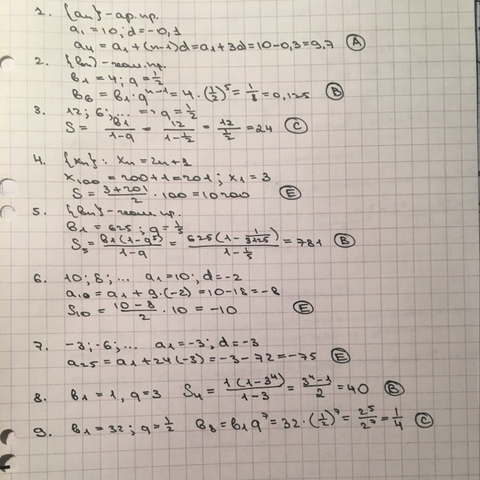 1. {an} - ар. пр.
a1 = 10; d = -0,1
a4 = a1 + (n-1)d = a1 + 3d = 10 - 0,3 = 9,7 (A)
2. {bn} - геом. пр.
b1 = 4; q = 1/2
b6 = b1 · q^(n-1) = 4 · (1/2)^5 = 1/8 = 0,125 (B)
3. 12; 6; ... => q = 1/2
S = b1/(1-q) = 12/(1-1/2) = 12/(1/2) = 24 (C)
4. {xn}: xn = 2n+1
x100 = 200+1 = 201; x1 = 3
S = (3+201)/2 · 100 = 10200 (E)
5. {bn} - геом. пр.
b1 = 625; q = 1/5
S5 = b1(1-q^5)/(1-q) = 625(1-1/3125)/(1-1/5) = 781 (B)
6. 10; 8; ... a1 = 10; d = -2
a10 = a1 + 9·(-2) = 10-18 = -8
S10 = (10-8)/2 · 10 = -10 (E)
7. -3; -6; ... a1 = -3; d = -3
a25 = a1 + 24(-3) = -3-72 = -75 (E)
8. b1 = 1, q = 3 S4 = 1(1-3^4)/(1-3) = (3^4-1)/2 = 40 (B)
9. b1 = 32; q = 1/2 b8 = b1q^7 = 32·(1/2)^7 = 2^5/2^7 = 1/4 (C)